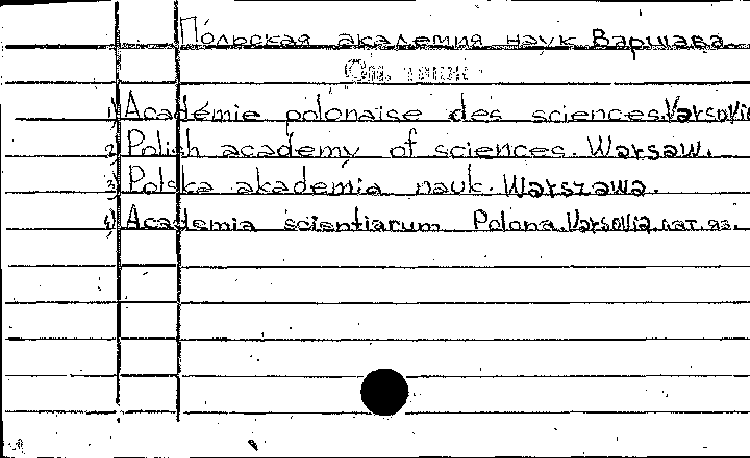 Польская академия наук Варшава
См. также
1) Académie polonaise des sciences. Varsovie
2) Polish academy of sciences. Warsaw.
3) Polska akademia nauk. Warszawa.
4) Academia scientiarum Polona. Varsovia. лат. яз.